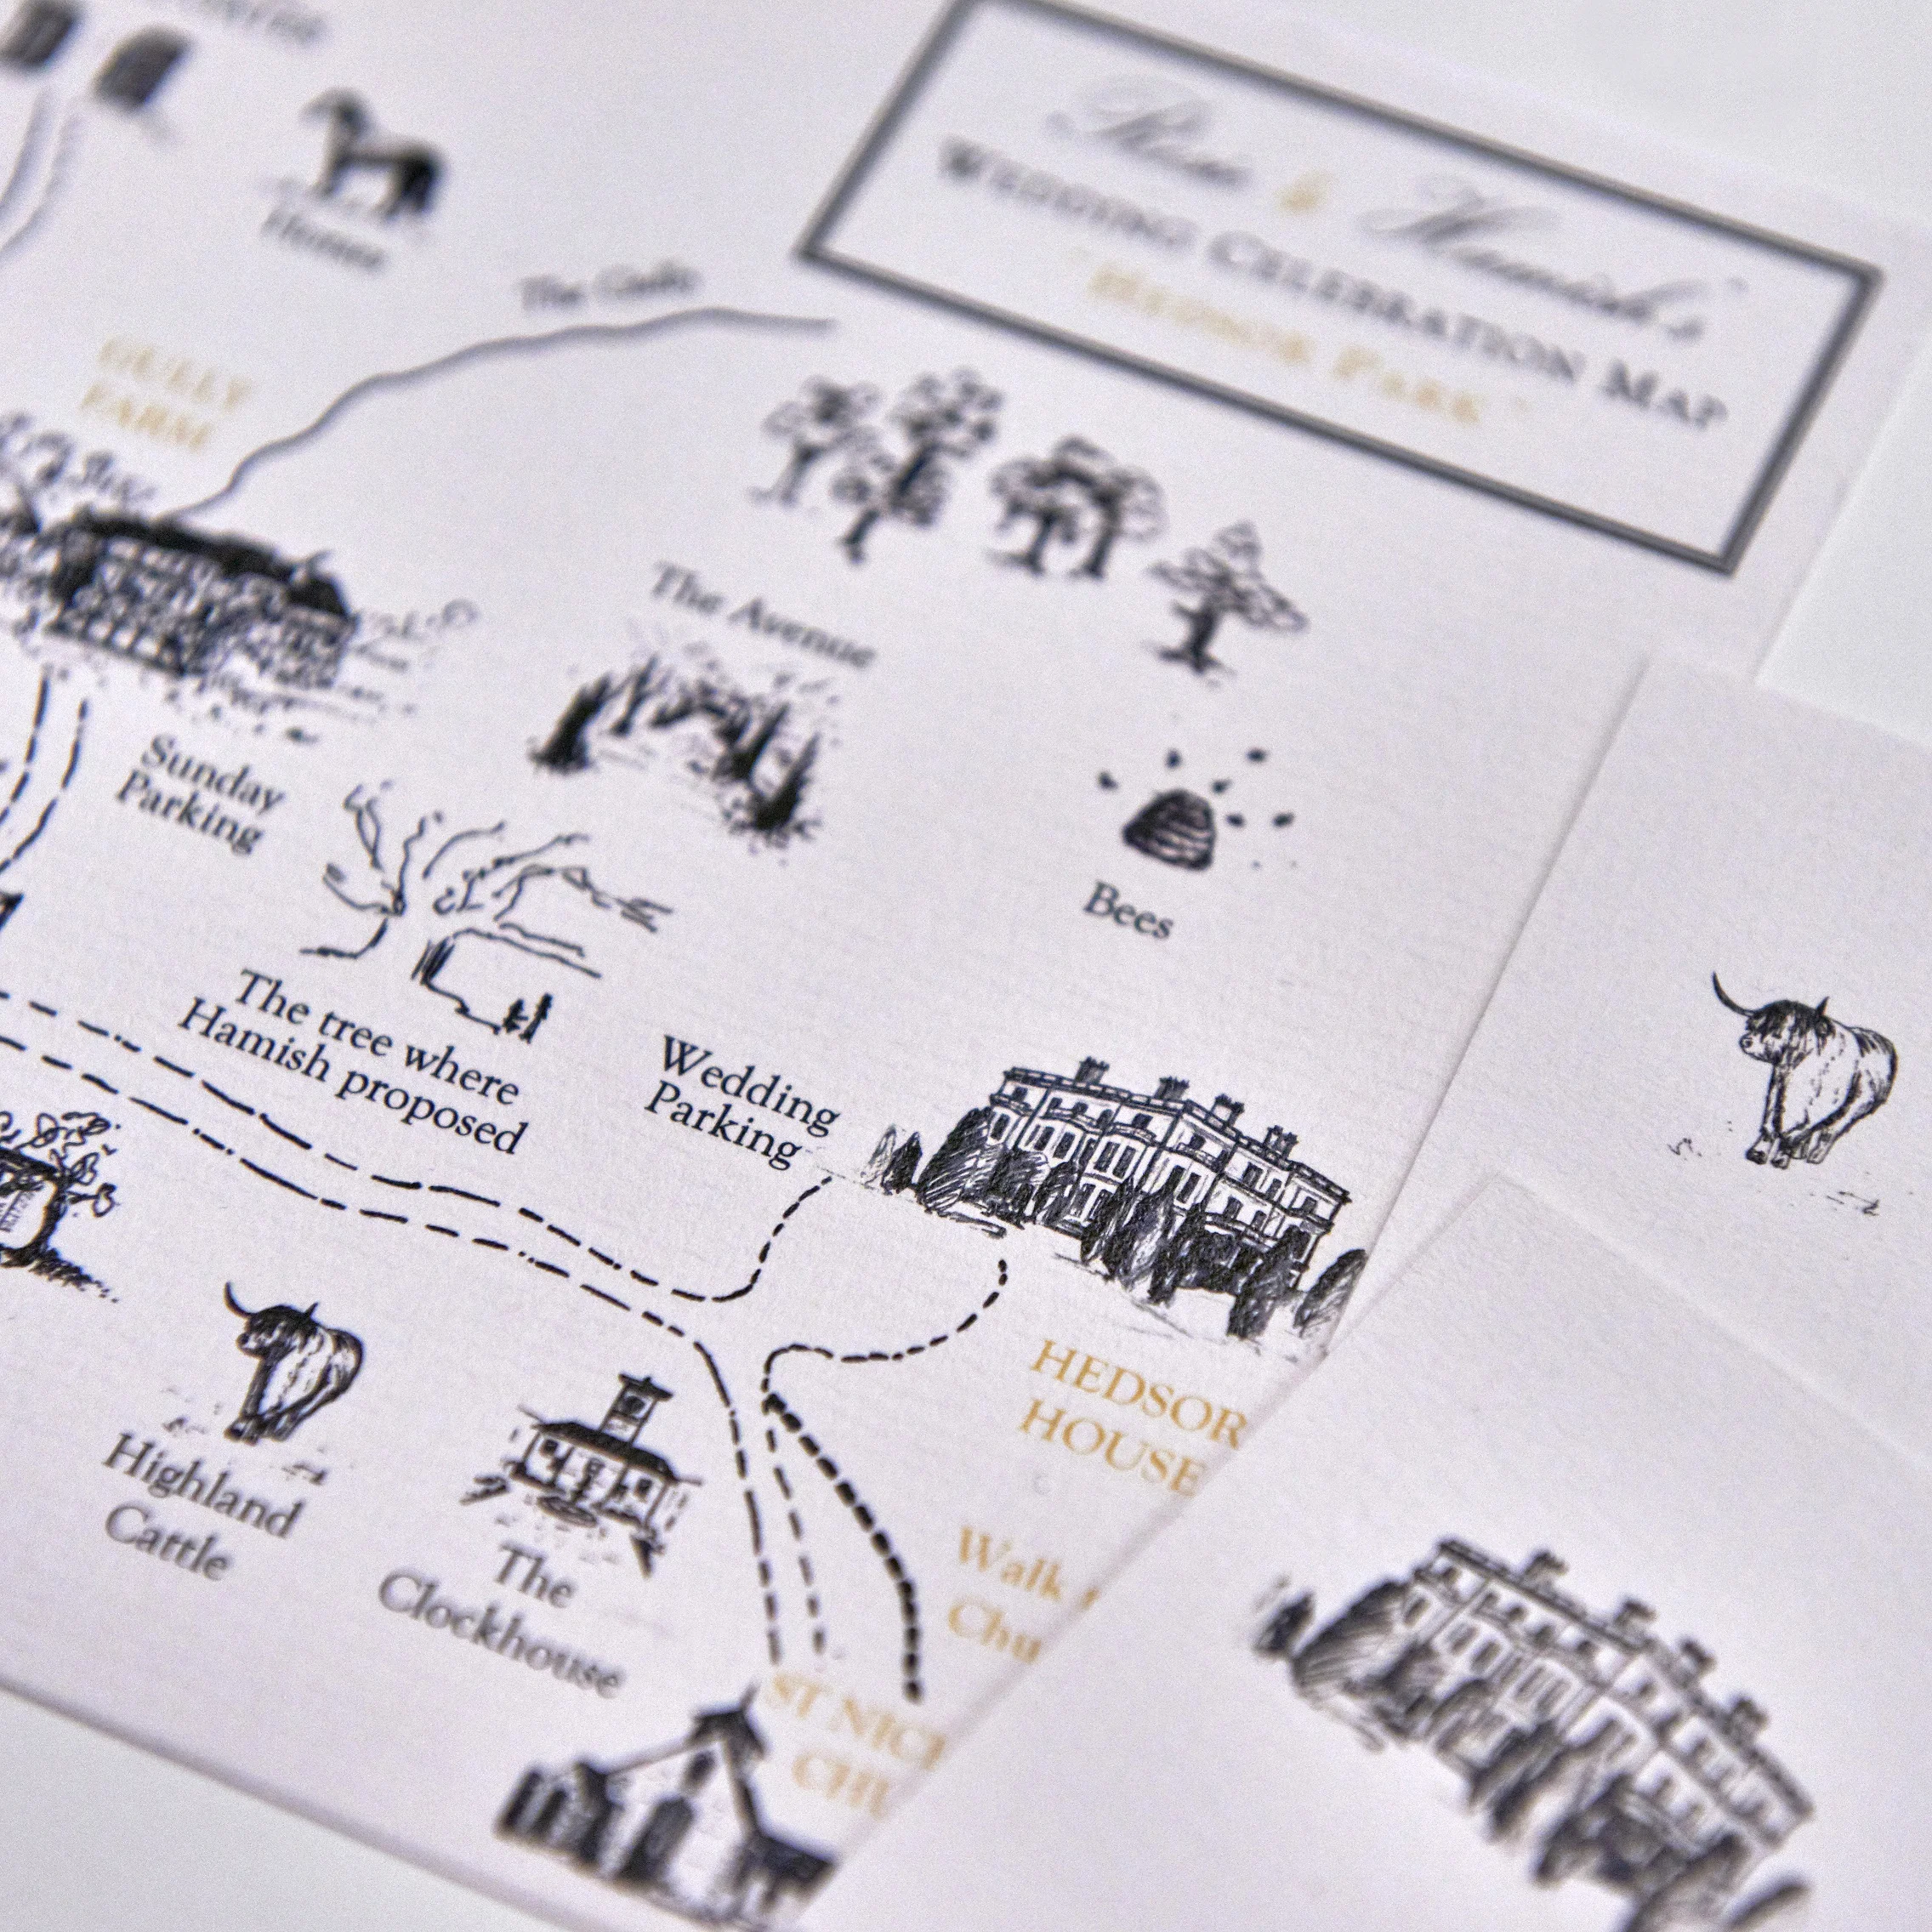 Rose & Hamish's
WEDDING CELEBRATION MAP
"HEDSOR PARK"
Horses
The Gallops
GULLY
FARM
The Avenue
Sunday
Parking
Bees
The tree where
Hamish proposed
Wedding
Parking
HEDSOR
HOUSE
Highland
Cattle
The
Clockhouse
Walk
Chu
ST NIC
CHU